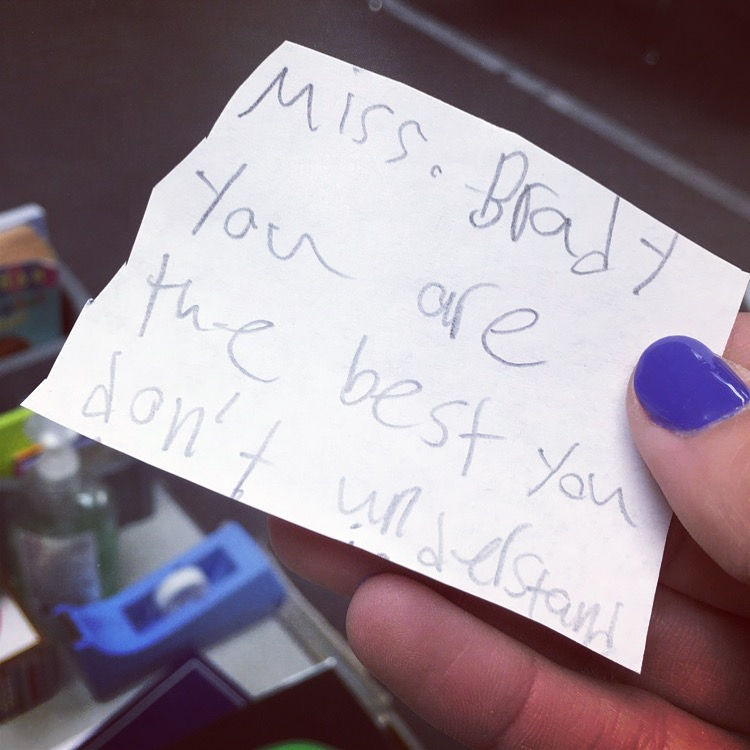 Miss. Brady
You are
the best you
don't understand